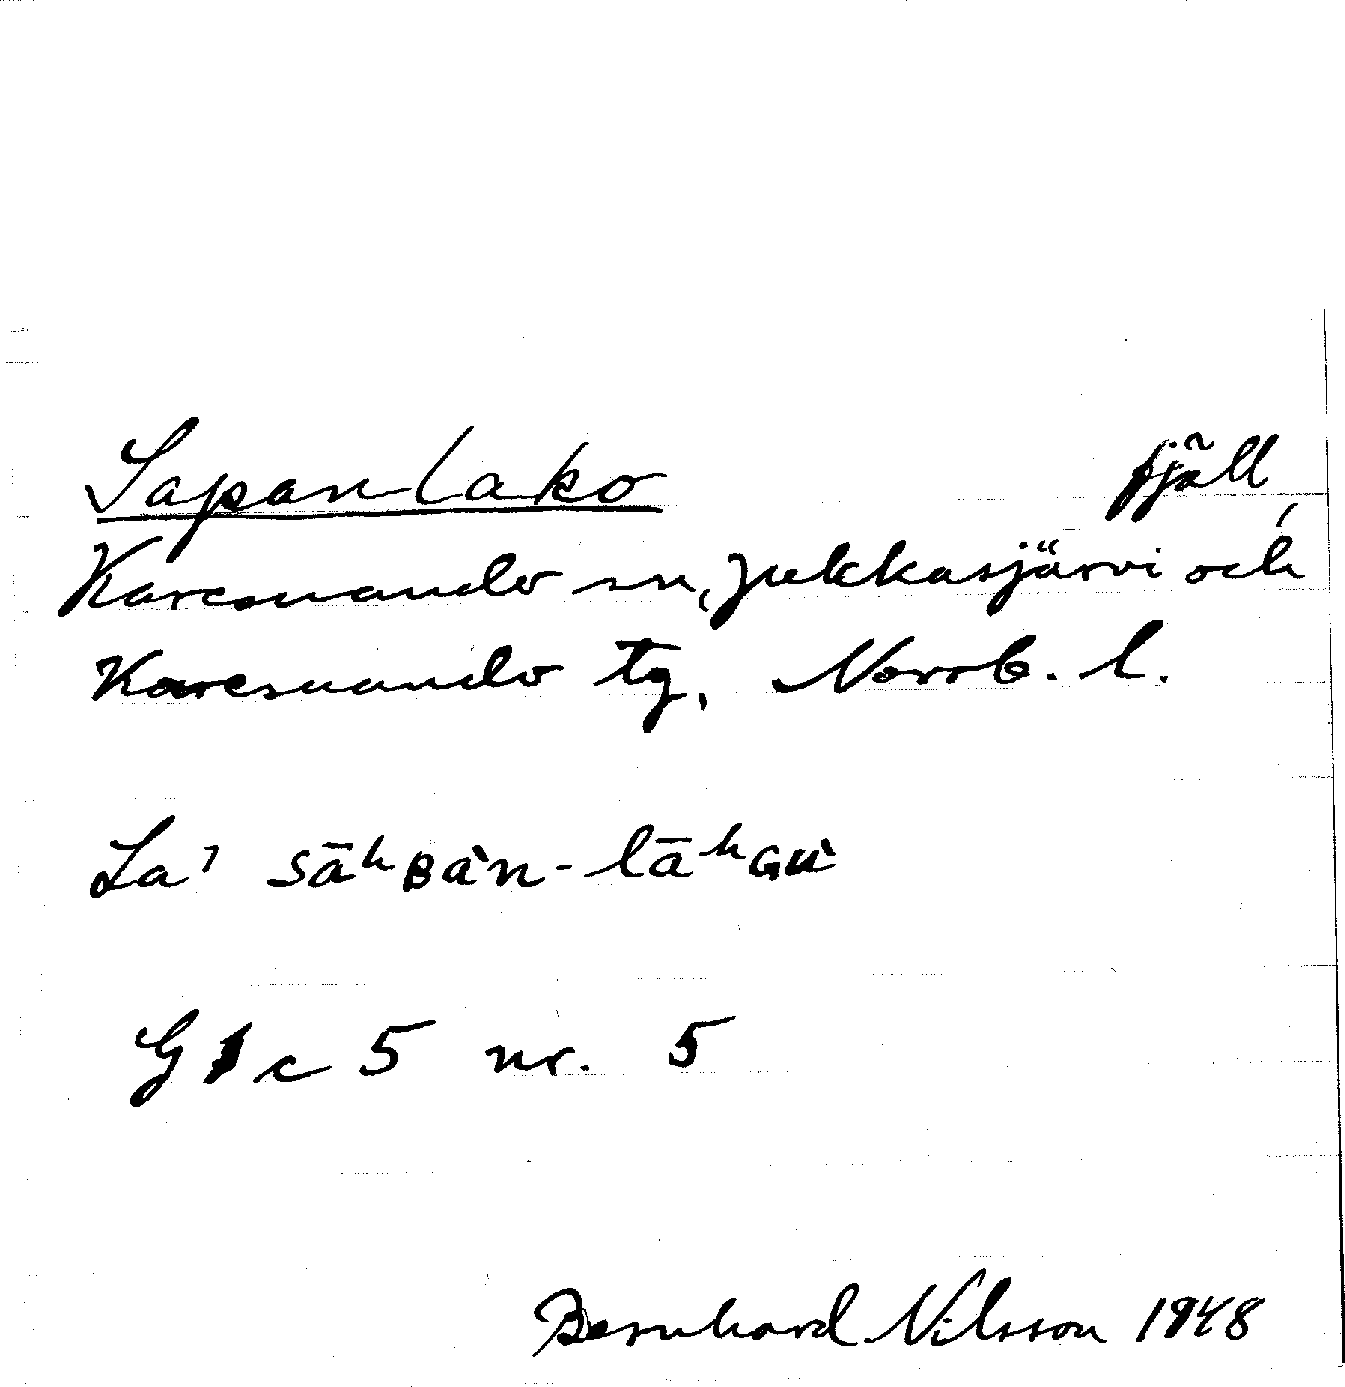 Sapanlako fjäll,
Karesuando sn, Jukkasjärvi och
Karesuando tg, Norrb. l.
La' sāʰʙàn-lāʰɢù
G 1 c 5 nr. 5
Bernhard Nilsson 1948